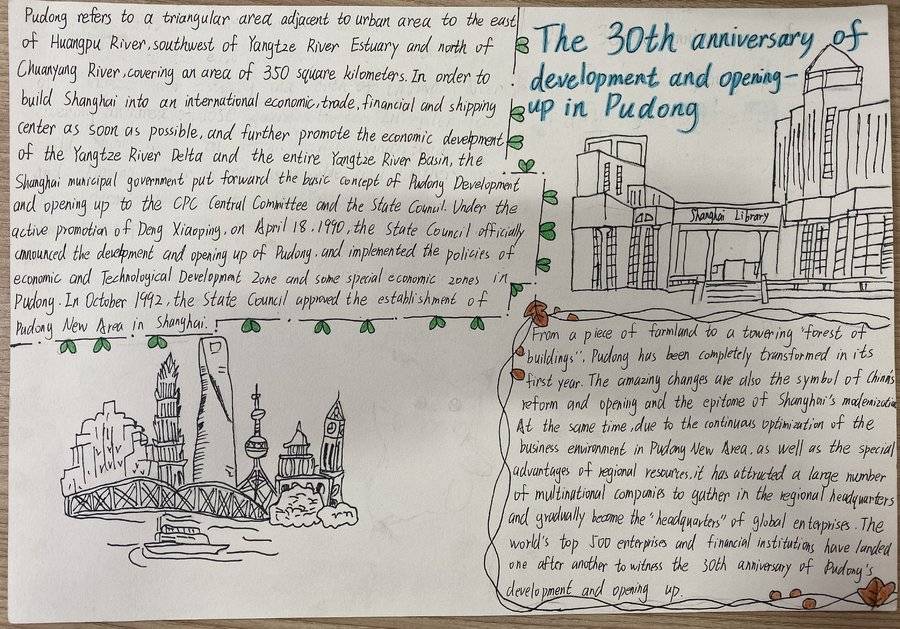 Pudong refers to a triangular area adjacent to urban area to the east
of Huangpu River, southwest of Yangtze River Estuary and north of
Chuanyang River, covering an area of 350 square kilometers. In order to
build Shanghai into an international economic, trade, financial and shipping
center as soon as possible, and further promote the economic development
of the Yangtze River Delta and the entire Yangtze River Basin, the
Shanghai municipal government put forward the basic concept of Pudong Development
and opening up to the CPC Central Committee and the State Council. Under the
active promotion of Deng Xiaoping, on April 18, 1990, the State Council officially
announced the development and opening up of Pudong, and implemented the policies of
economic and Technological Development Zone and some special economic zones in
Pudong. In October 1992, the State Council approved the establishment of
Pudong New Area in Shanghai.
The 30th anniversary of
development and opening-
up in Pudong
Shanghai Library
From a piece of farmland to a towering "forest of
buildings", Pudong has been completely transformed in its
first year. The amazing changes are also the symbol of China's
reform and opening and the epitome of Shanghai's modernization
At the same time, due to the continuous optimization of the
business environment in Pudong New Area, as well as the special
advantages of regional resources, it has attracted a large number
of multinational companies to gather in the regional headquarters
and gradually become the "headquarters" of global enterprises. The
world's top 500 enterprises and financial institutions have landed
one after another to witness the 30th anniversary of Pudong's
development and opening up.